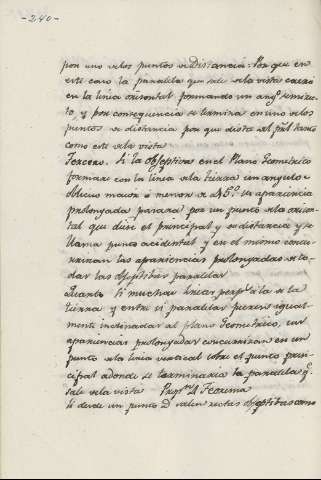 -240-
por uno de los puntos de Distancia: Por que en
este caso la paralela que sale de la vista caera
en la linea orisontal formando un angº semirec-
to, y por consequencia se termina en uno de los
puntos de distancia por que dista del pral tanto
como este de la vista
Tercero. Si la obgeptiva en el Plano Geometrico
formare con la linea de la tierra un angulo
oblicuo maior ó menor de 45.º su apariencia
prolongada pasará por un punto de la orison-
tal que divi el principal y su distancia y se
llama punto accidental y en el mismo concu-
rriran las apariencias prolongadas de to-
das las obgeptibas paralelas
Quarto Si muchas lineas perpˢ á la de la
tierra y entre si paralelas fueren igual-
mente inclinadas al plano Geometrico, sus
apariencias prolongadas concurriran en un
punto de la linea vertical sobre el punto prin-
cipal adonde se terminaria la paralela q.
sale de la vista Propⁿ 4 Teorema
Si desde un punto D salen rectas obgeptibas como